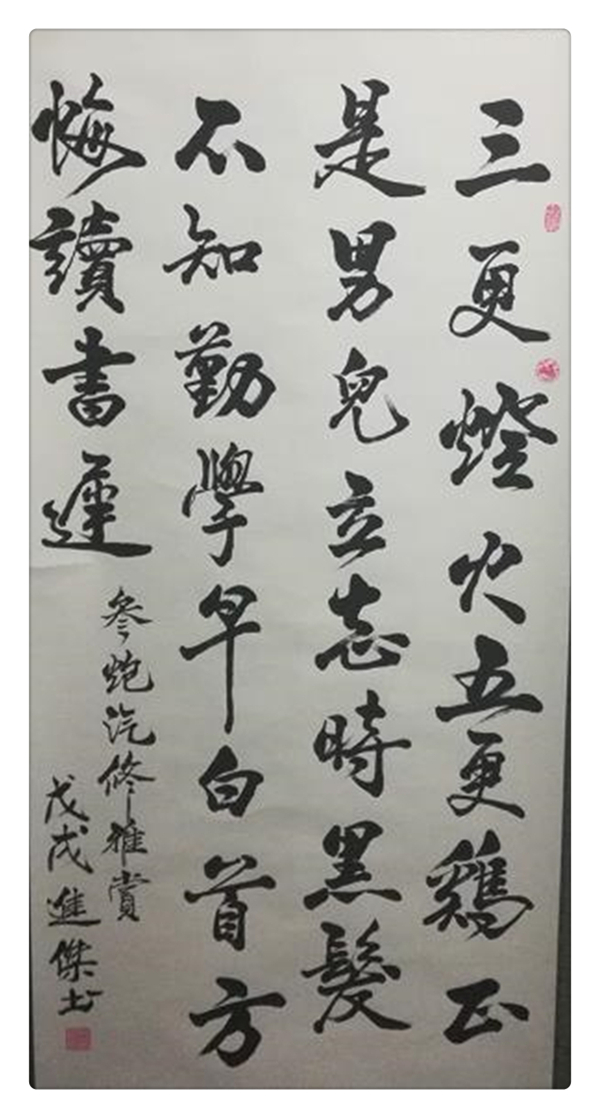 三更燈火五更鷄正
是男兒立志時黑髮
不知勤學早白首方
悔讀書遲
叅炮汽修雅賞
戊戌進傑书